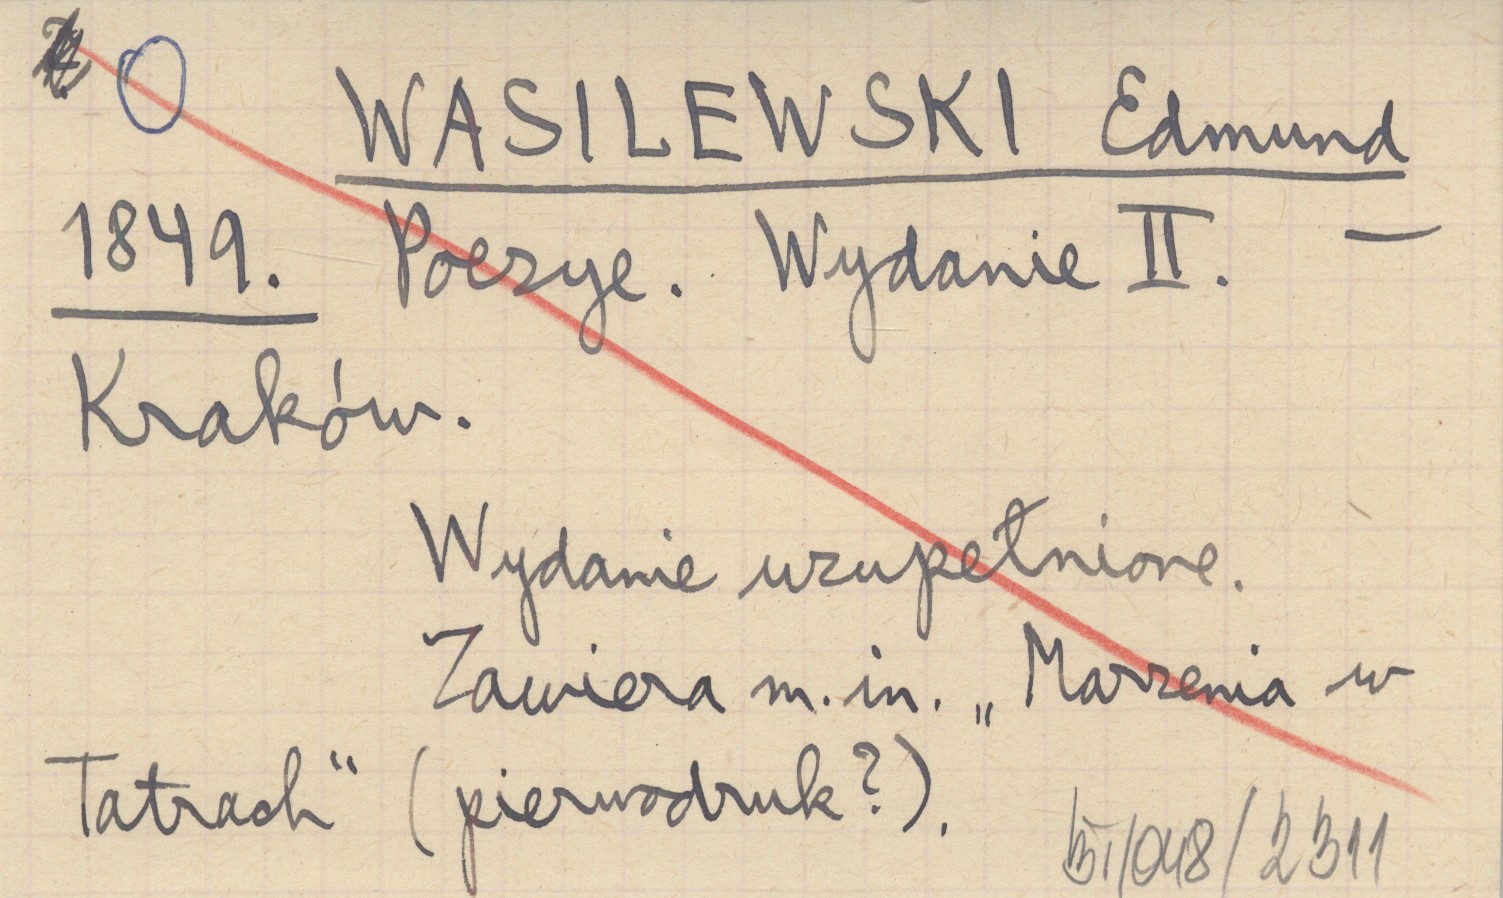 WASILEWSKI Edmund
1849. Poezye. Wydanie II. —
Kraków.
Wydanie uzupełnione.
Zawiera m. in. „Marzenia w
Tatrach“ (pierwodruk?).
/048/2311